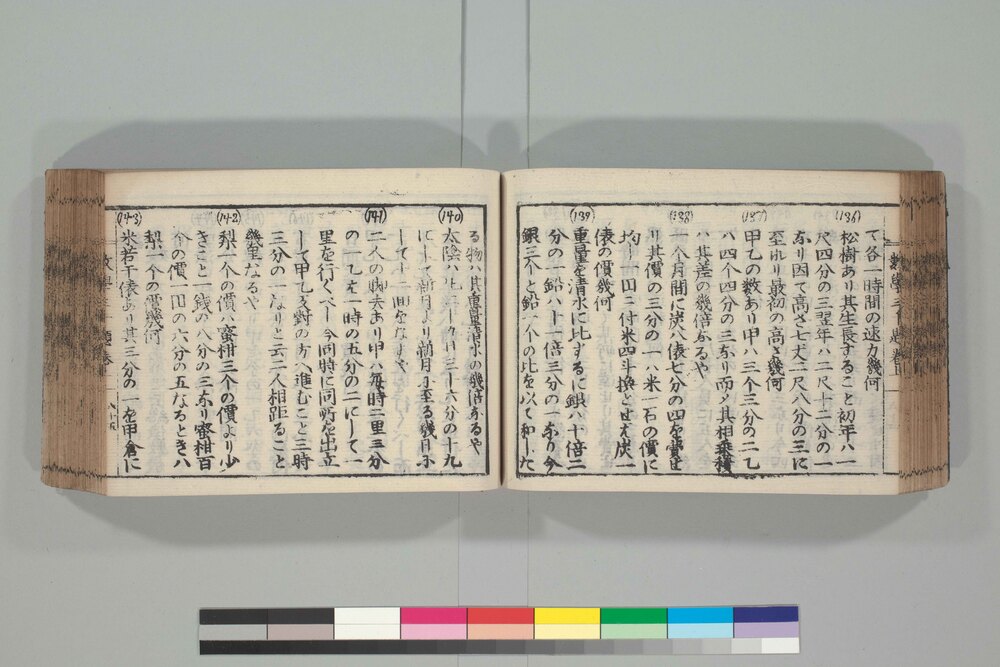 て各一時間の速力幾何
(136)
松樹あり其生長すること初年ハ一
尺四分の三翌年ハ二尺十二分の一
なり因て高さ七丈二尺八分の三に
至れり最初の高さ幾何
(137)
甲乙の数あり甲ハ三个三分の二乙
ハ四个四分の三なり而〆其相乗積
ハ其差の幾倍なるや
(138)
一个月間に炭八俵七分の四を費せ
り其價の三分の一ハ米一石の價に
均し一円に付米四斗換とせバ炭一
俵の價幾何
(139)
重量を清水に比するに銀ハ十倍二
分の一鉛ハ十一倍三分の一なり今
銀三个と鉛一个の比を以て和した
る物ハ其重量清水の幾倍なるや
(140)
太陰ハ
にして新月より新月に至る幾月に
して十二回をなすや
(141)
二人の脚夫あり甲ハ毎時二里三分
の一乙ハ一時の五分の二にして一
里を行くべし今同時に同所を出立
して甲乙反對の方へ進むこと三時
三分の一なりと云二人相距ること
幾里なるや
(142)
梨一个の價ハ蜜柑三个の價より少
きこと一銭の八分の三なり蜜柑百
个の價一円の六分の五なるときハ
梨一个の價幾何
(143)
米若干俵あり其三分の一を甲倉に